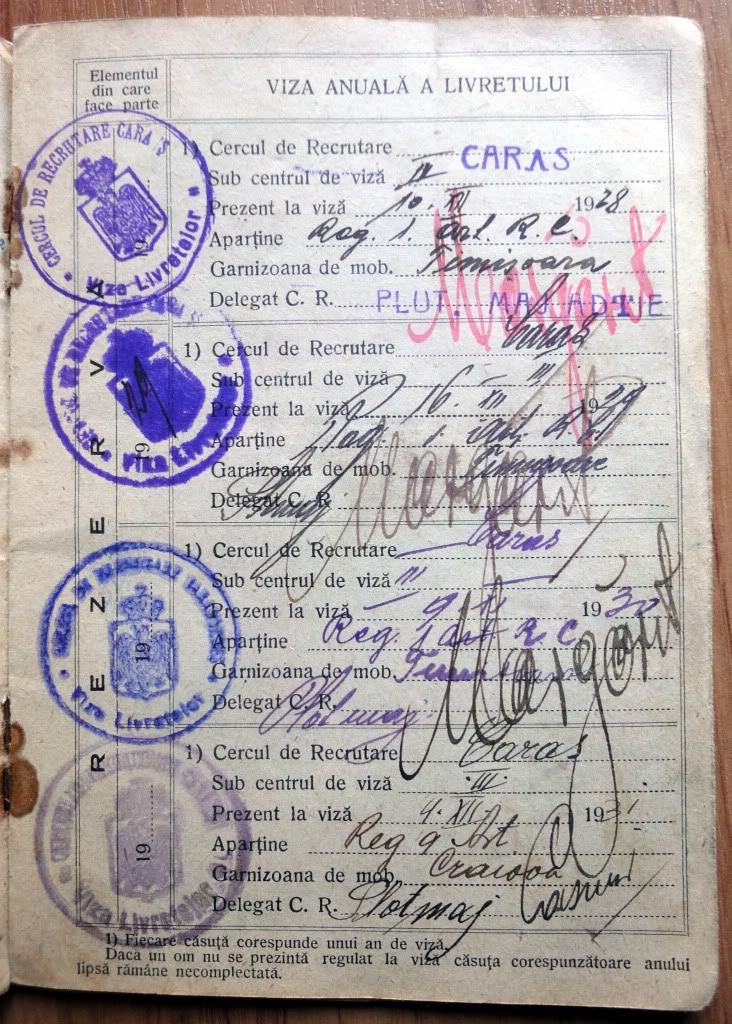 Elementul
din care
face parte
VIZA ANUALĂ A LIVRETULUI
REZERVA
CERCUL DE RECRUTARE CARAȘ
Viza Livretelor
19
1) Cercul de Recrutare CARAS
Sub centrul de viză IV
Prezent la viză 10. XII 1928
Aparține Reg. 1. Art. R. C.
Garnizoana de mob. Timișoara
Delegat C. R. PLUT. MAJ ADTIE
Viza Livretelor
19
1) Cercul de Recrutare Caraș
Sub centrul de viză III
Prezent la viză 16. XII 1929
Aparține Reg. 1. Art.
Garnizoana de mob. Timișoara
Delegat C. R.
Viza Livretelor
19
1) Cercul de Recrutare Caras
Sub centrul de viză III
Prezent la viză 1930
Aparține Reg. 1 Art R. C.
Garnizoana de mob.
Delegat C. R. Plot maj.
Viza Livretelor
19
1) Cercul de Recrutare Caras
Sub centrul de viză III
Prezent la viză 4. XII. 1931
Aparține Reg 9 Art
Garnizoana de mob. Craiova
Delegat C. R. Plotmaj
1) Fiecare căsuță corespunde unui an de viză.
Daca un om nu se prezintă regulat la viză căsuța corespunzătoare anului
lipsă rămâne necomplectată.